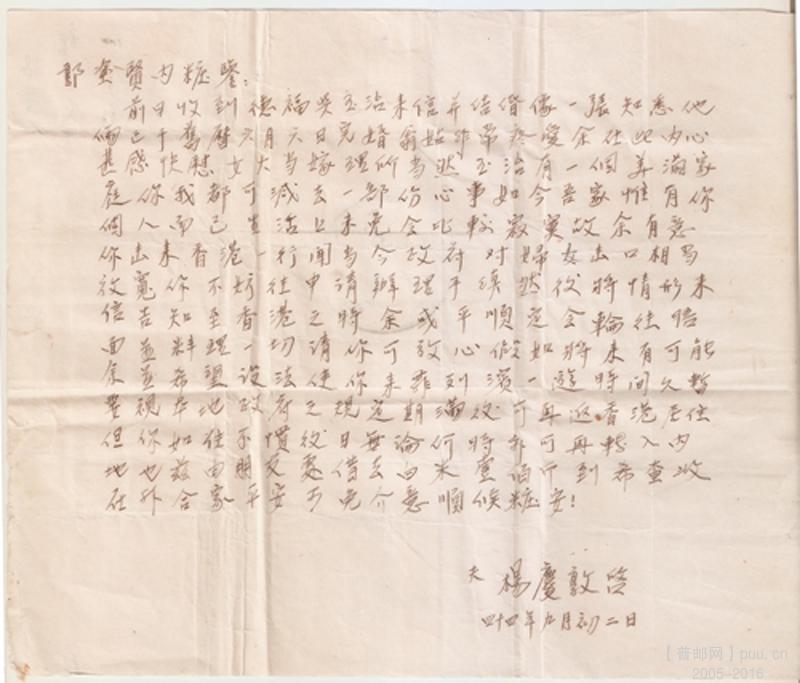 郭䒭賢內粧鑒：
前日收到德福吳玉治來信并結偕像一張知悉他
倆已于舊曆六月六日完婚翁姑非常疼愛余在此內心
甚感快慰女大当嫁理所当然玉治有一個美滿家
庭你我都可減去一部份心事如今吾家惟有你
個人而已生活上未免会比較寂寞故余有意
你出來香港一行聞当今政府对婦女出口相当
放寬你不妨往申請辦理手續然後將情形來
信告知至香港之時余或平順定会輪往晤
面並料理一切請你可放心假如將來有可能
余並希望設法使你來菲列濱一遊時間久暫
要視本地政府之規定期滿後可再返香港居住
但你如住不慣後日無論何時亦可再轉入內
地也茲由朋友處借去白米壹佰斤到希查收
在外合家平安可免介意順候粧安！
夫 楊慶敦啓
四十四年九月初二日
【普邮网】puu.cn
2005-2016